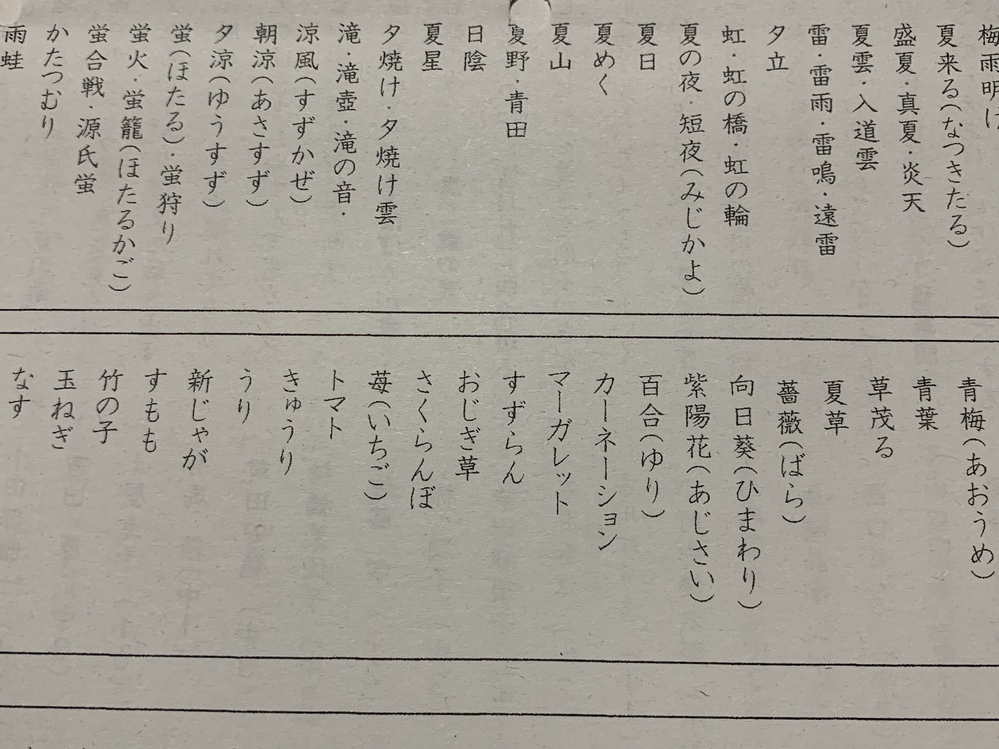 梅雨明け
夏来る(なつきたる)
盛夏・真夏・炎天
夏雲・入道雲
雷・雷雨・雷鳴・遠雷
夕立
虹・虹の橋・虹の輪
夏の夜・短夜(みじかよ)
夏日
夏めく
夏山
夏野・青田
日陰
夏星
夕焼け・夕焼け雲
滝・滝壺・滝の音・
涼風(すずかぜ)
朝涼(あさすず)
夕涼(ゆうすず)
蛍(ほたる)・蛍狩り
蛍火・蛍籠(ほたるかご)
蛍合戦・源氏蛍
かたつむり
雨蛙
青梅(あおうめ)
青葉
草茂る
夏草
薔薇(ばら)
向日葵(ひまわり)
紫陽花(あじさい)
百合(ゆり)
カーネーション
マーガレット
すずらん
おじぎ草
さくらんぼ
苺(いちご)
トマト
きゅうり
うり
新じゃが
すもも
竹の子
玉ねぎ
なす